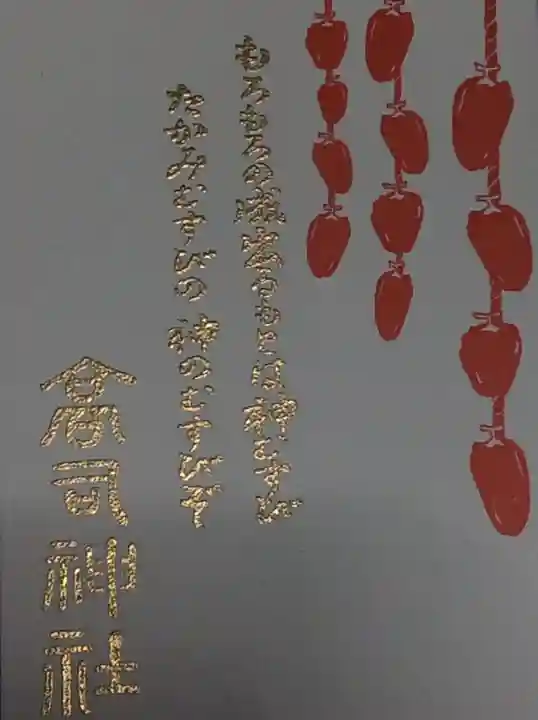 もろもろの もとは神むすび
たかみむすびの 神のむすびぞ
高司神社